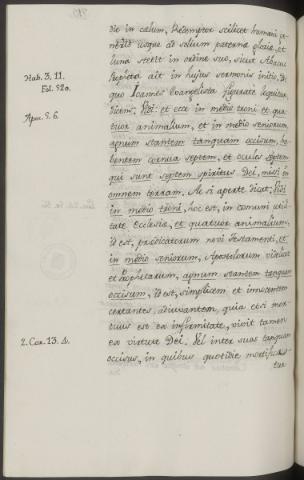 die in cœlum, Redemptor scilicet humani ge-
neris usque ad solium paternæ gloriæ, et
luna stetit in ordine suo, sicut Abacuc
Hab. 3. 11.
Propheta ait in hujus sermonis initio, de
Fol. 520.
quo Ioannes Evangelista figurate loquitur
dicens: Vidi: et ecce in medio troni et qua
Apoc. 5. 6.
tuor animalium, et in medio seniorum,
agnum stantem tanquam occisum, ha-
bentem cornua septem, et oculos septem
qui sunt septem spiritus Dei, missi in
omnem terram. Ac si aperte dicat: Vidi
in medio troni, hoc est, in comuni utili-
tate Ecclesiæ, et quatuor animalium,
id est, prædicatorum novi Testamenti, et
in medio seniorum, Apostolorum videlicet
et Prophetarum, agnum stantem tanquam
occisum, id est, simplicem et innocentem
certantes adiuvantem, quia etsi mor
tuus est ex infirmitate, vivit tamen
2. Cor. 13. 4.
ex virtute Dei. Vel inter suos tanquam
occisus, in quibus quotidie mortifica-
tur